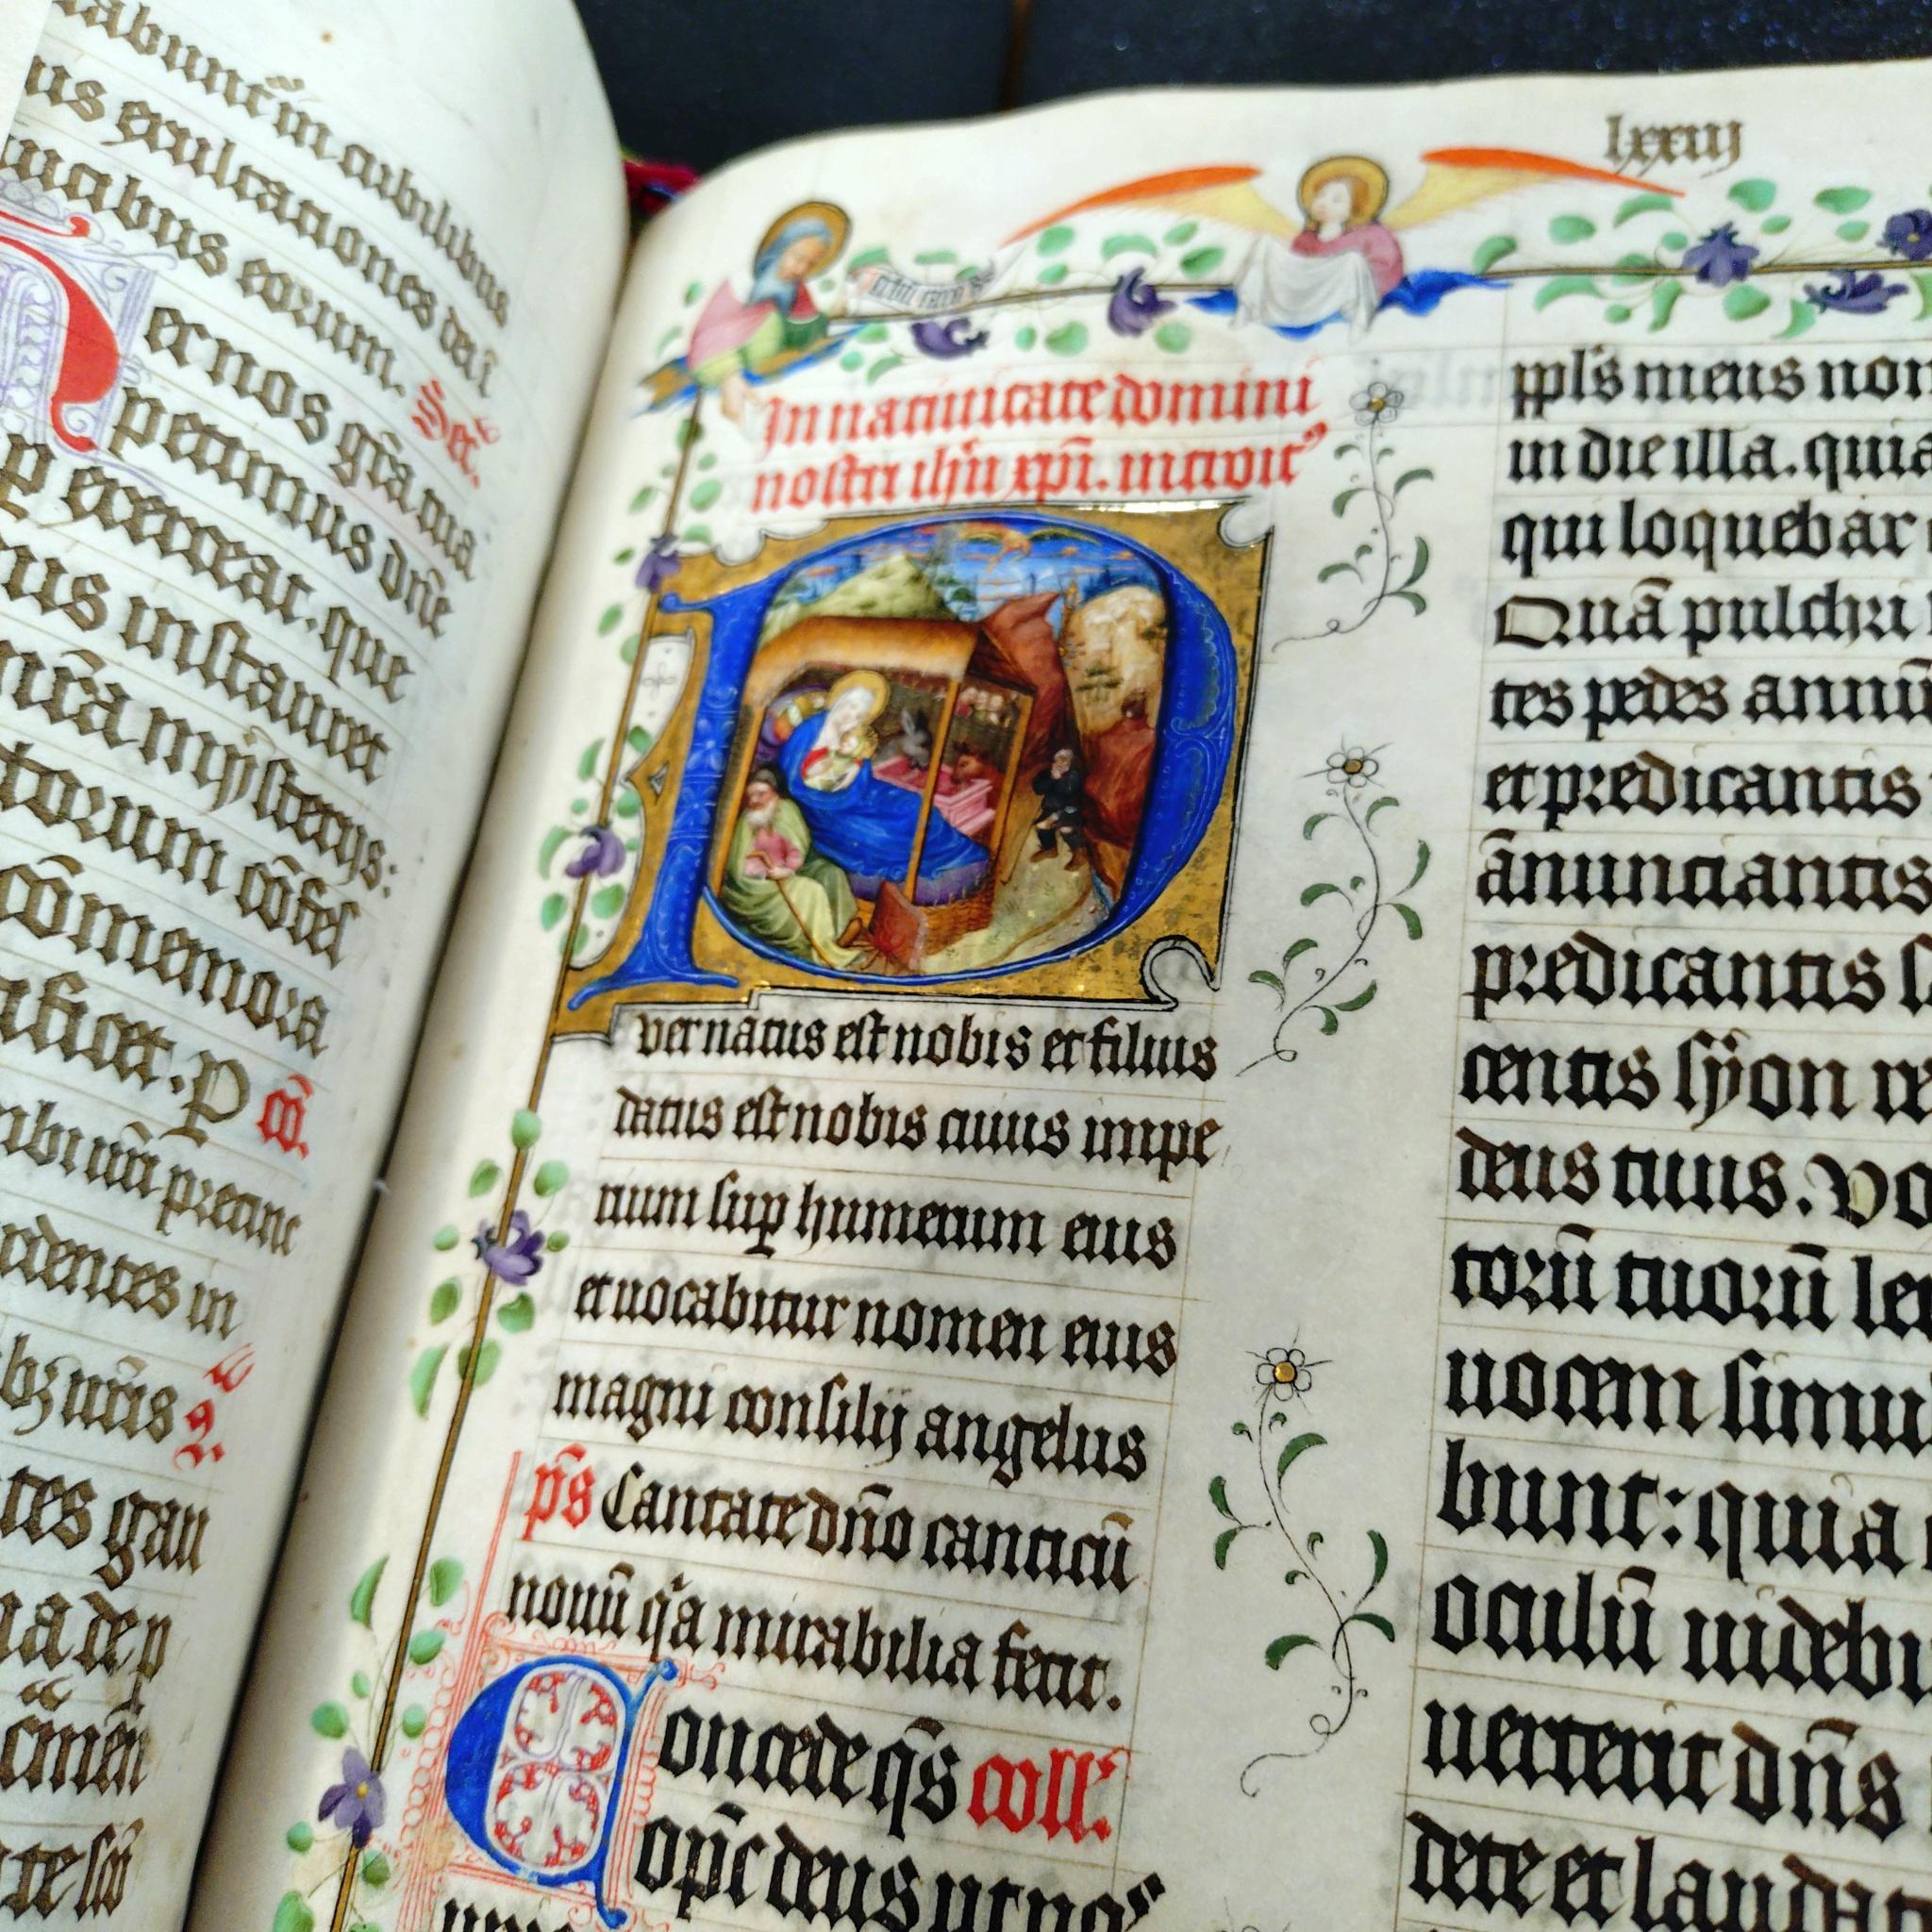 abunt᷑ in cubilibus
us exultationes dei ī
ucibus eorum. Secͬ
er nos gr̄a tua
petimus dn̄e
p exerceat. que
us instauret
nr̄a mysterijs:
torum cōfes
cōmemora
ificet. P cō.
ibi um̄ precinc
cidentes in
bꝫ urīs
tes gau
ia de p
lxxiij
In natiuitate domini
nostri ih̄u xp̄i. introit᷒
Puer natus est nobis et filius
datus est nobis cuius impe
rium sup̲ humerum eius
et uocabitur nomen eius
magni consilij angelus
p̄s Cantate dn̄o canticū
nouū qͣa mirabilia fecit.
Concede qs̄ coll᷑
op̄c deus ut nos
pp̄ls meus non
in die illa. quia
qui loquebar
Quā pulchri
tes pedes annū
et predicantis
ānunciantis
predicantis s
centis syon re
deus tuus. Vo
torū tuorū le
uocem simu
bunt: quia
oculū uidebu
uerterit dn̄s
dete et laudat